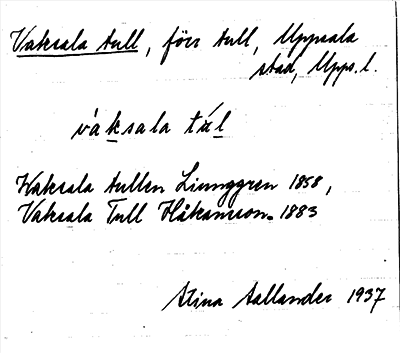 Vaksala tull, förr tull, Uppsala
stad, Upps. l.
váksala túl
Waksala tullen Liunggren 1858,
Vaksala Tull Håkanson 1883
Stina Aallander 1937